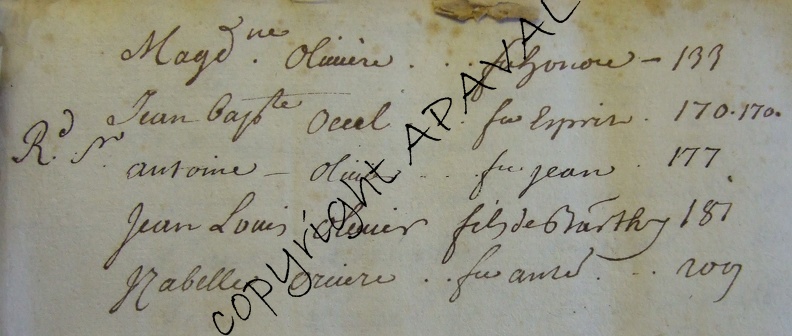 Magdne. Olivière . . fu honore – 133
Jean Bapte Ocel . fu Esprit . 170.170.
Rd Sr antoine – olivier . . . fu jean . 177
Jean Louis olivier fils de Barthy 187
Izabelle oriere . . fu antd . . . 209
copyright APAVAL